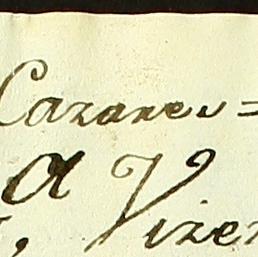 Cazares=
a Vizen
,